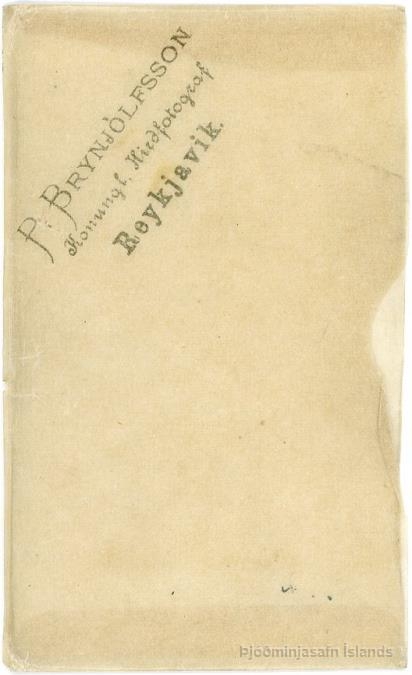 P. BRYNJÓLFSSON
Konungl. Hirdfotograf
Reykjavik.
Þjóðminjasafn Íslands